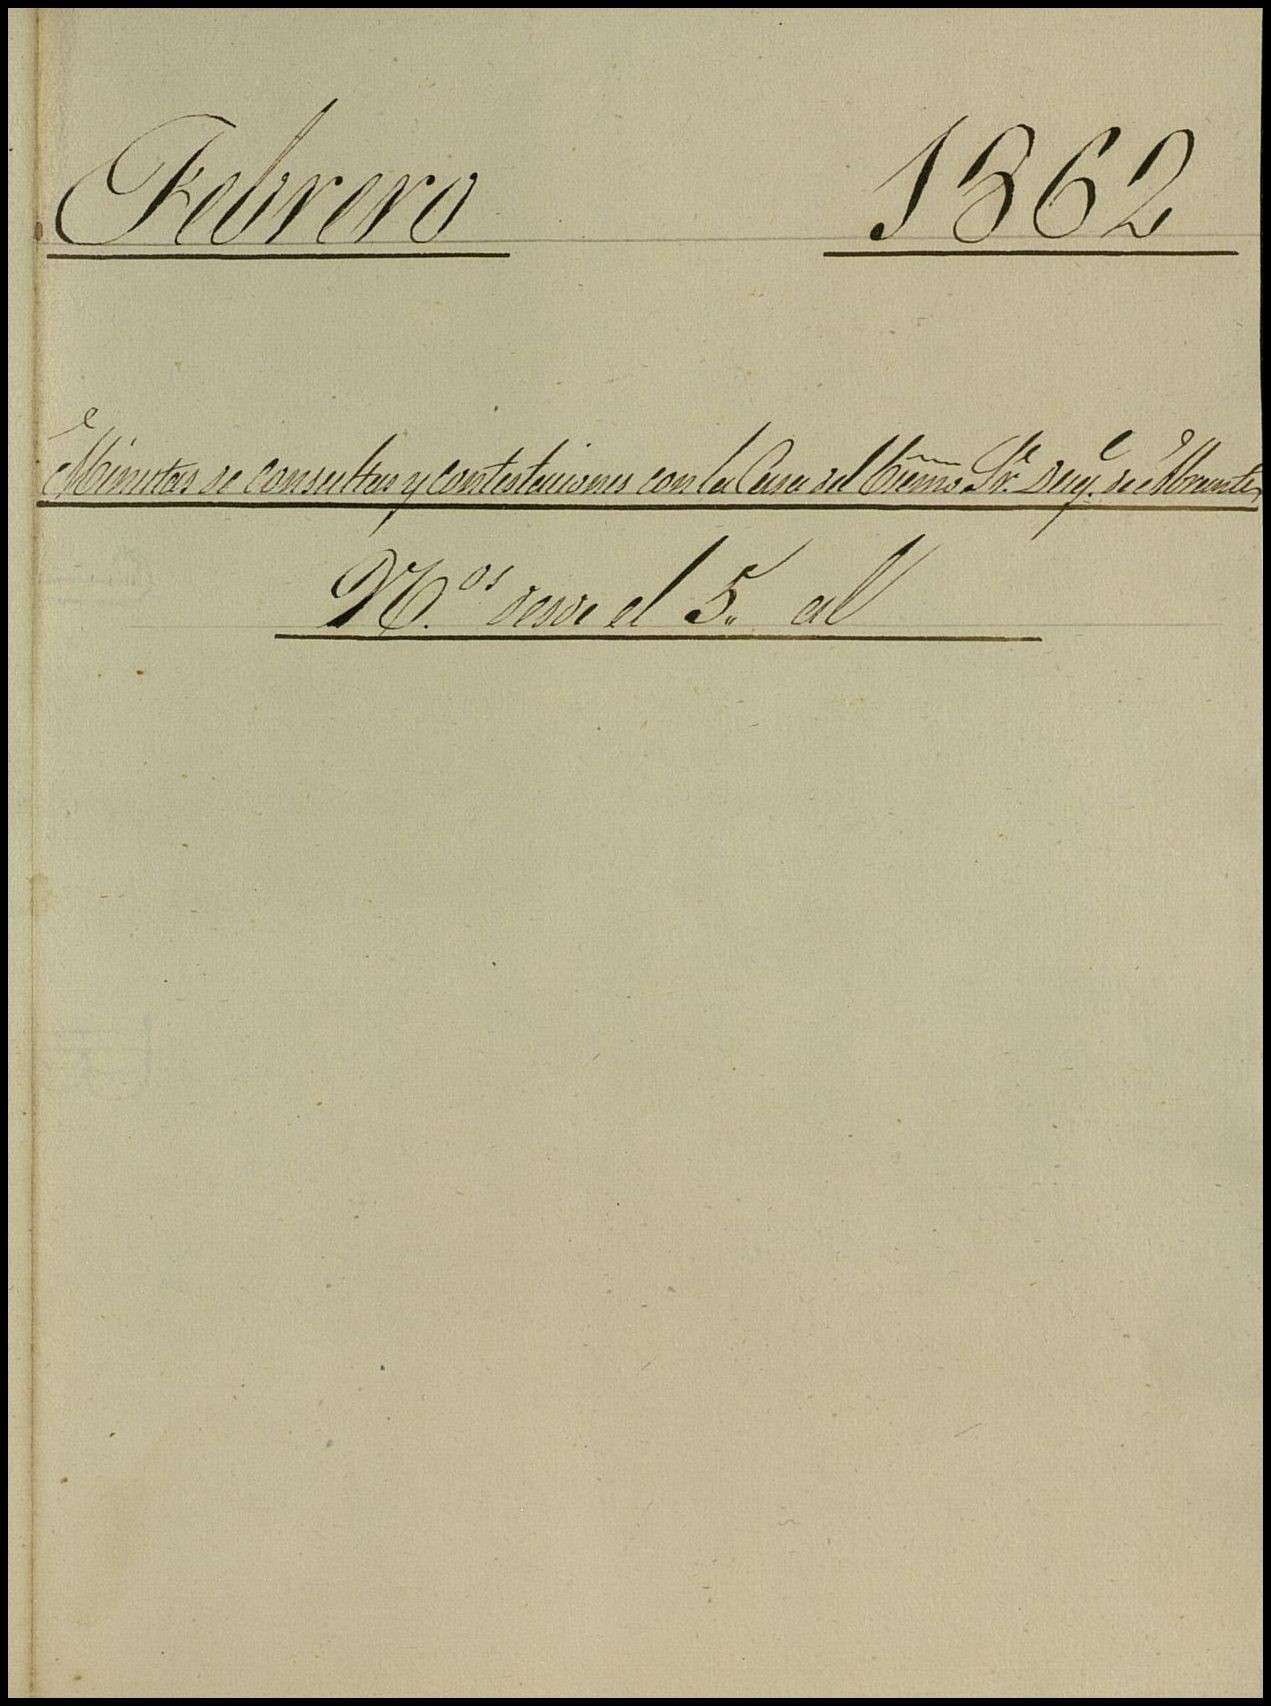 Febrero 1862
Minutas de consultas y contestaciones con la Casa del Exmo Sr. Duq.e de Abrantes
N.os desde el 5.. al